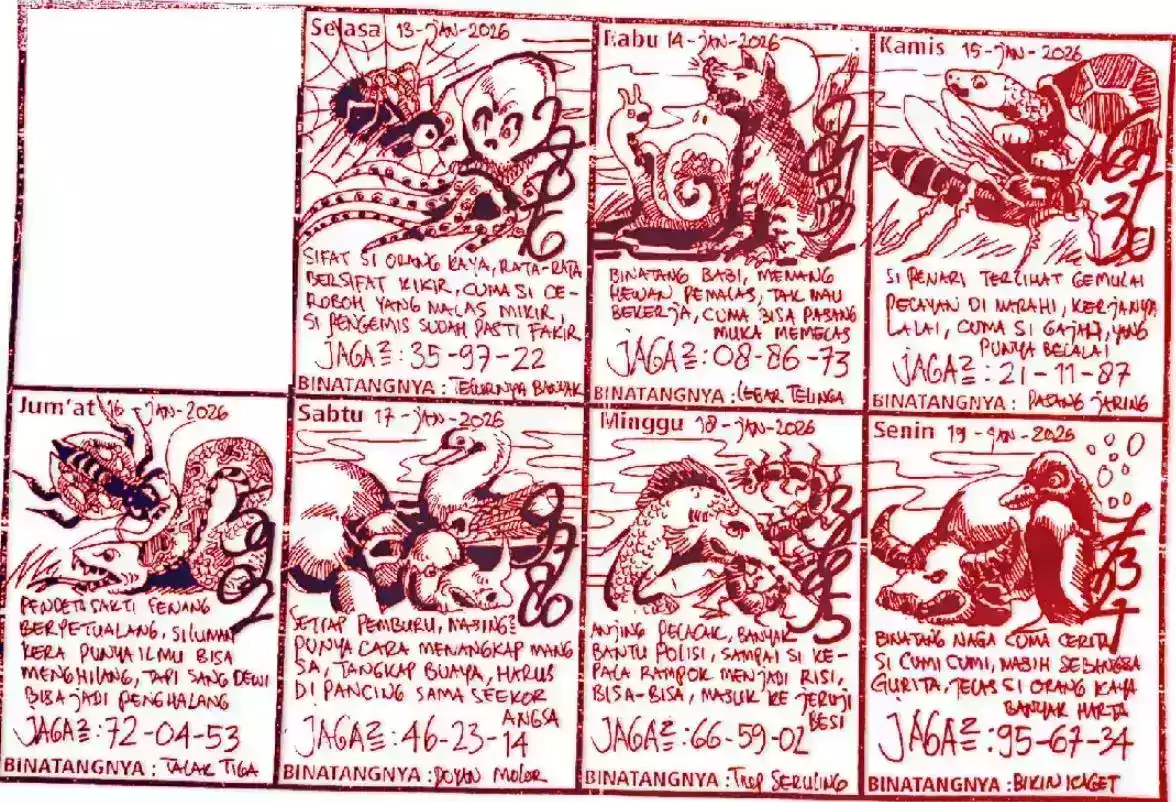 Selasa 13-JAN-2026
SIFAT SI ORANG KAYA, RATA-RATA
BERSIFAT KIKIR, CUMA SI CE-
ROBOH YANG MALAS MIKIR,
SI PENGEMIS SUDAH PASTI FAKIR
JAGA2 : 35-97-22
BINATANGNYA : TELURNYA BANYAK
Rabu 14-JAN-2026
BINATANG BABI, MENANG
HEWAN PEMALAS, TAK MAU
BEKERJA, CUMA BISA PASANG
MUKA MEMELAS
JAGA2 : 08-86-73
BINATANGNYA : LEBAR TELINGA
Kamis 15-JAN-2026
SI PENARI TERLIHAT GEMULAI
PELAYAN DI MARAHI, KERJANYA
LALAI, CUMA SI GAJAH, YANG
PUNYA BELALAI
JAGA2 : 21-11-87
BINATANGNYA : PASANG JARING
Jum'at 16-JAN-2026
PENDETA SAKTI SENANG
BERPETUALANG, SILUMAN
KERA PUNYA ILMU BISA
MENGHILANG, TAPI SANG DEWI
BISA JADI PENGHALANG
JAGA2 : 72-04-53
BINATANGNYA : TALAK TIGA
Sabtu 17-JAN-2026
SETIAP PEMBURU, MASING2
PUNYA CARA MENANGKAP MANG
SA, TANGKAP BUAYA, HARUS
DI PANCING SAMA SEEKOR
ANGSA
JAGA2 : 46-23-14
BINATANGNYA : DOYAN MOLOR
Minggu 18-JAN-2026
ANJING PELACAK, BANYAK
BANTU POLISI, SAMPAI SI KE-
PALA RAMPOK MENJADI RISI,
BISA-BISA, MASUK KE JERUJI
BESI
JAGA2 : 66-59-02
BINATANGNYA : TIUP SERULING
Senin 19-JAN-2026
BINATANG NAGA CUMA CERITA
SI CUMI CUMI, MASIH SEBANGSA
GURITA, JELAS SI ORANG KAYA
BANYAK HARTA
JAGA2 : 95-67-34
BINATANGNYA : BIKIN KAGET